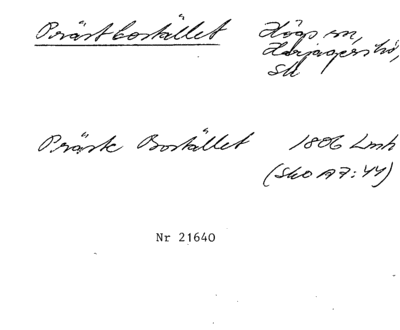 Prästbostället
Högs sn,
Harjagers hd,
Sk
Präste Bostället 1806 Lmh
(Sk0 A7:44)
Nr 21640